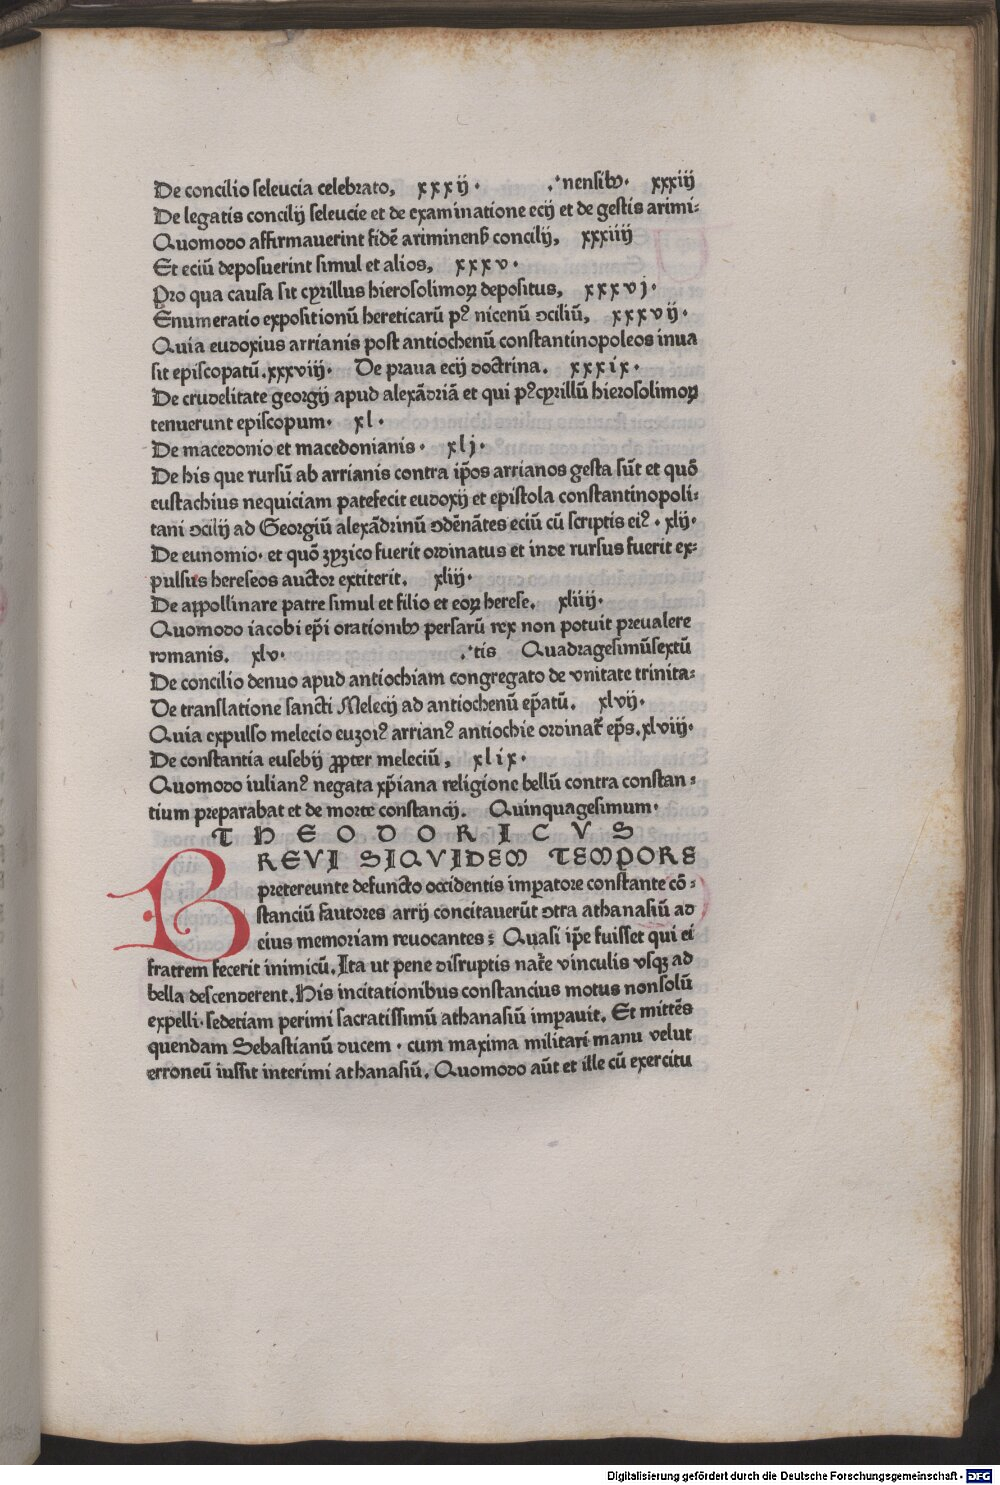 De concilio seleucia celebrato, xxxij · .·nensibꝰ· xxxiij
De legatis concilij seleucie et de examinatione ecij et de gestis arimi⸗
Quomodo affirmauerint fidē ariminenß concilij, xxxiiij
Et eciū deposuerint simul et alios, xxxv ·
Pro qua causa sit cyrillus hierosolimoꝝ depositus, xxxvj ·
Enumeratio expositionū hereticarū pꝰ nicenū ↄciliū, xxxvij ·
Quia eudoxius arrianis post antiochenū constantinopoleos inua
sit episcopatū.xxxviij· De praua ecij doctrina. xxxix ·
De crudelitate georgij apud alexādriā et qui pꝰcyrillū hierosolimoꝝ
tenuerunt episcopum· xl ·
De macedonio et macedonianis · xlj ·
De his que rursū ab arrianis contra ip̄os arrianos gesta sūt et quō
eustachius nequiciam patefecit eudoxij et epistola constantinopoli⸗
tani ↄcilij ad Georgiū alexādrinū ↄdēnātes eciū cū scriptis eiꝰ · xlij·
De eunomio· et quō zyzico fuerit ordinatus et inde rursus fuerit ex⸗
pulsus hereseos auctor extiterit. xliij·
De appollinare patre simul et filio et eoꝝ herese. xliiij·
Quomodo iacobi ep̄i orationibꝰ persarū rex non potuit preualere
romanis. xlv· .·tis Quadragesimūsextū
De concilio denuo apud antiochiam congregato de vnitate trinita⸗
De translatione sancti Melecij ad antiochenū ep̄atū. xlvij·
Quia expulso melecio euzoiꝰ arrianꝰ antiochie ordinat̄ ep̄s.xlviij·
De constantia eusebij ꝓpter meleciū, xlix·
Quomodo iulianꝰ negata xp̄iana religione bellū contra constan⸗
tium preparabat et de morte constancij. Quinquagesimum·
THEODORICVS
BREVI SIQVIDEM TEMPORE
pretereunte defuncto occidentis imꝑatore constante cō⸗
stanciū fautores arrij concitauerūt ↄtra athanasiū ad
eius memoriam reuocantes: Quasi ip̄e fuisset qui ei
fratrem fecerit inimicū. Ita ut pene disruptis nat̄e vinculis vsqꝫ ad
bella descenderent. His incitationibus constancius motus nonsolū
expelli· sedetiam perimi sacratissimū athanasiū imꝑauit. Et mittēs
quendam Sebastianū ducem · cum maxima militari manu velut
erroneū iussit interimi athanasiū. Quomodo aūt et ille cū exercitu
Digitalisierung gefördert durch die Deutsche Forschungsgemeinschaft - DFG